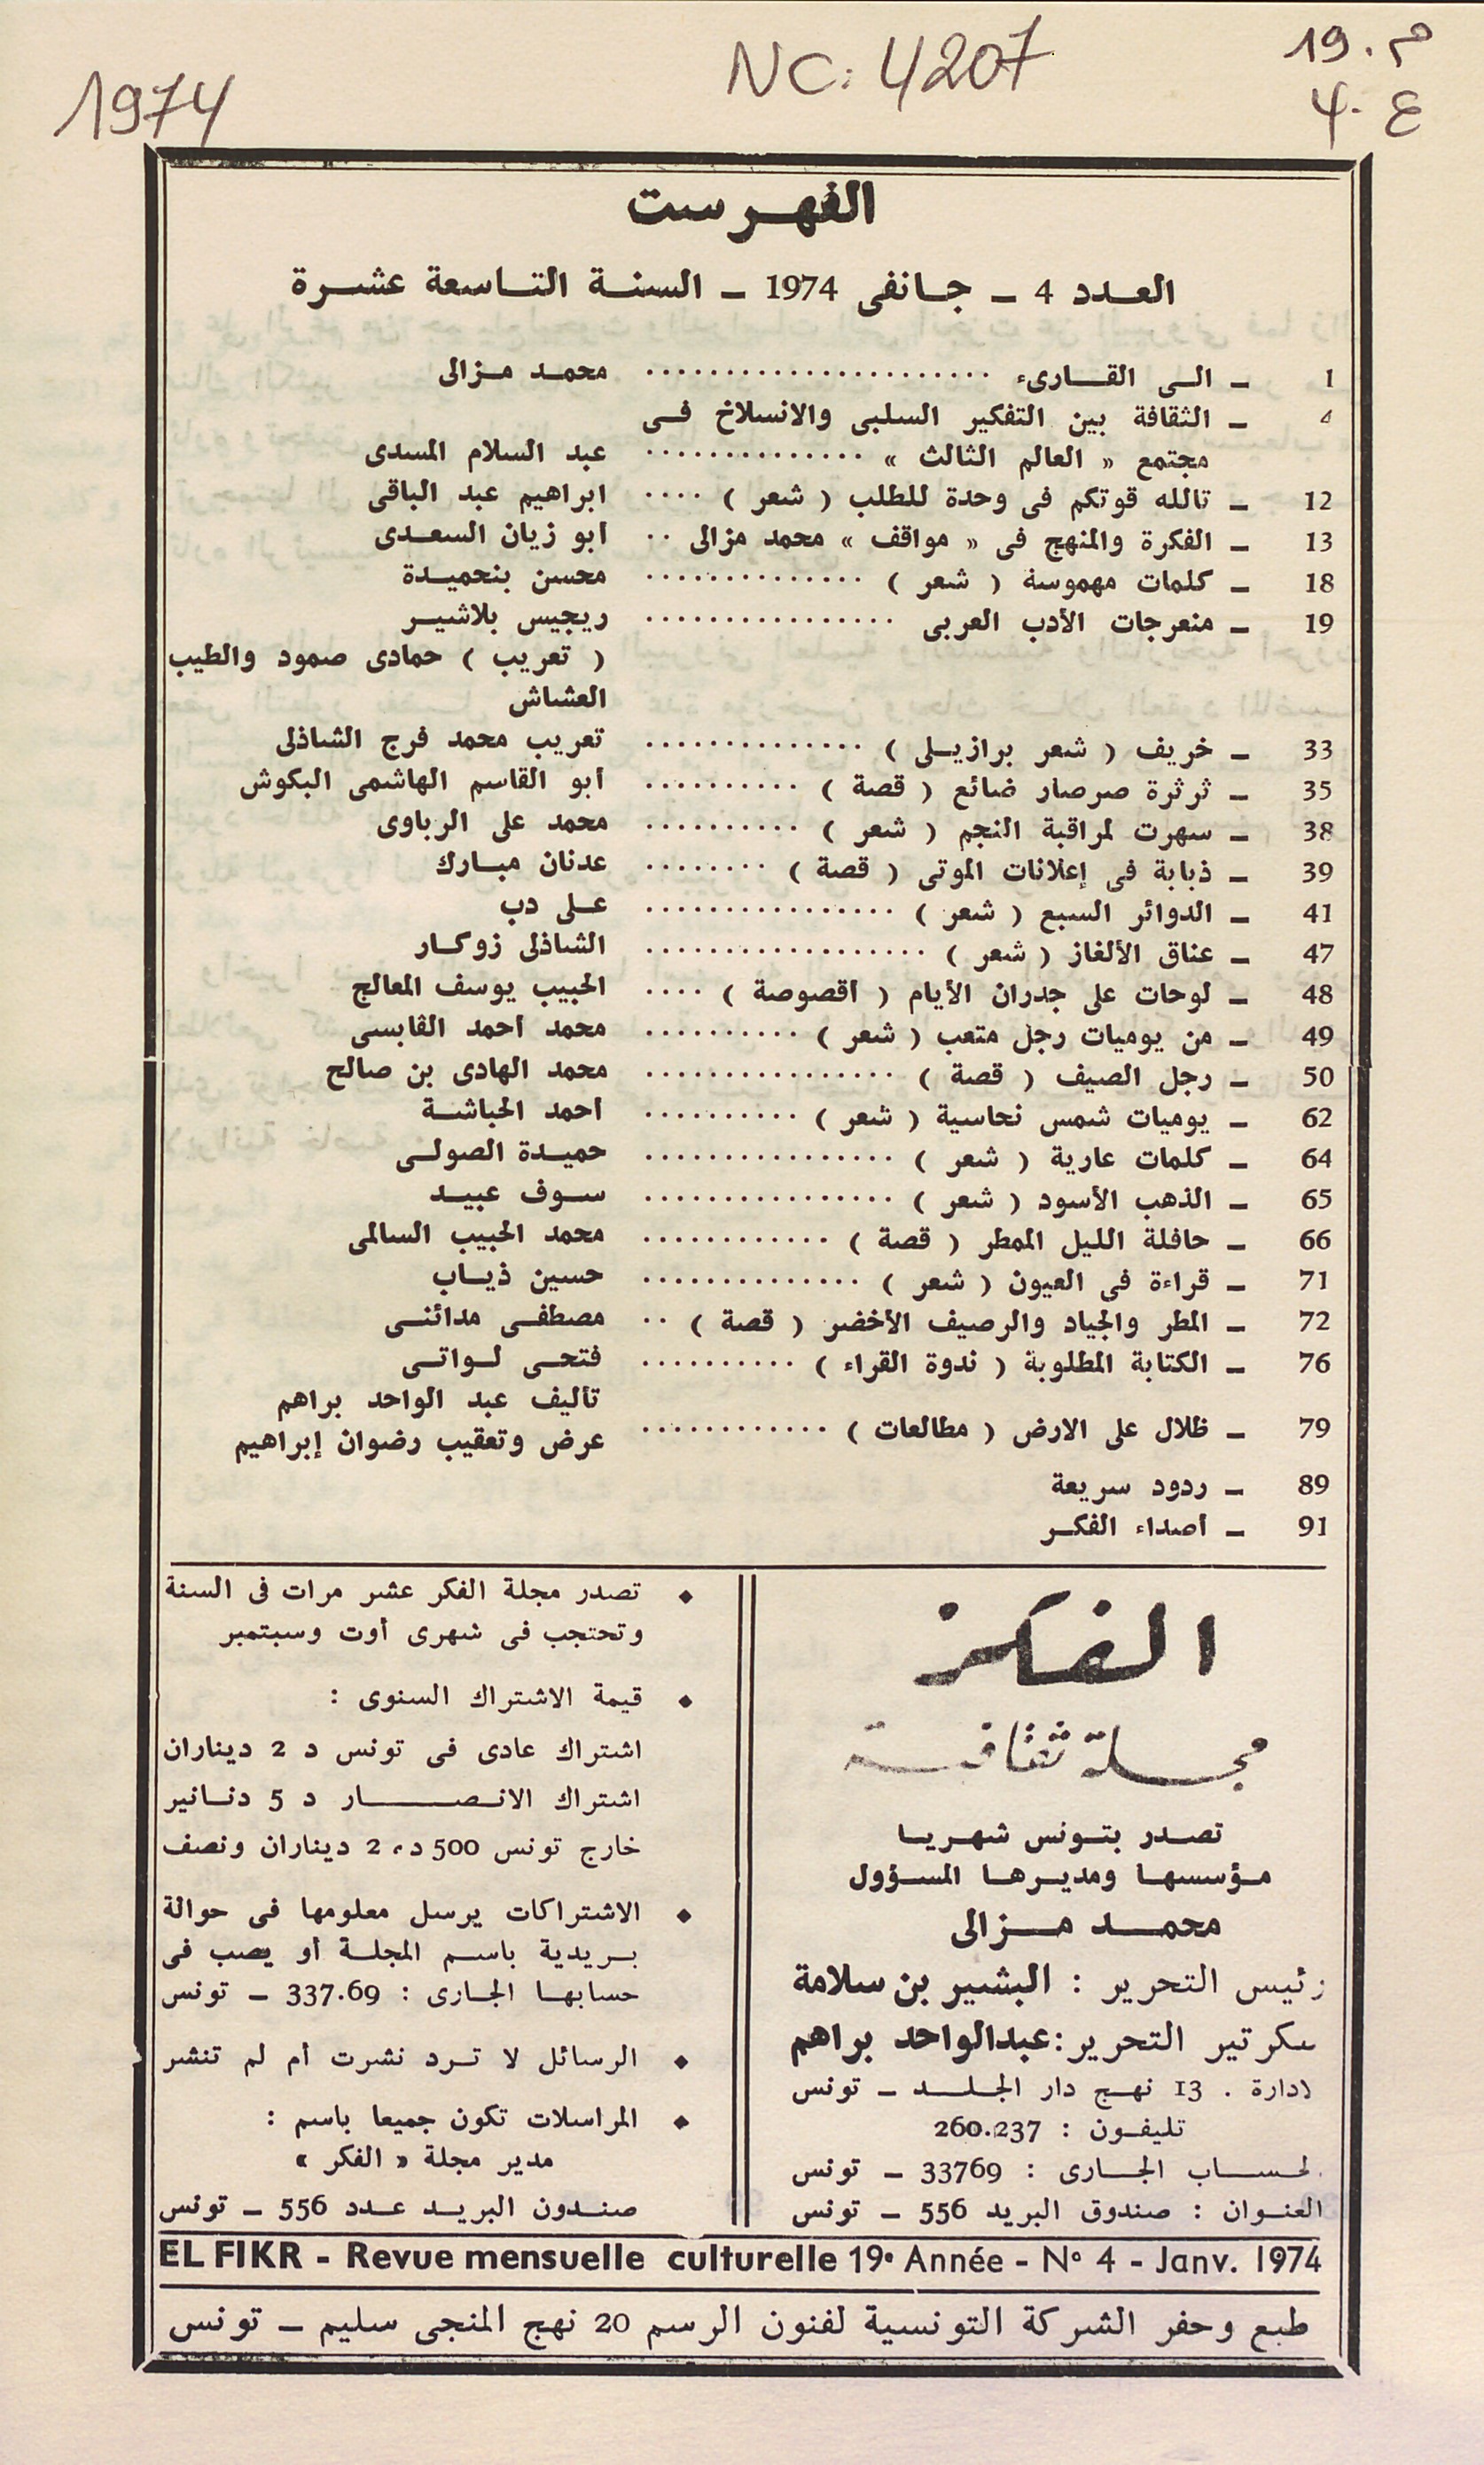 1974
NC: 4207
م. 19
ع. 4
الفهرست
العدد 4 ـ جانفى 1974 ـ السنة التاسعة عشرة
1 ـ الى القارىء ...................... محمد مزالى
4 ـ الثقافة بين التفكير السلبى والانسلاخ فى
مجتمع « العالم الثالث » .............. عبد السلام المسدى
12 ـ تالله قوتكم فى وحدة للطلب ( شعر ) .... ابراهيم عبد الباقى
13 ـ الفكرة والمنهج فى « مواقف » محمد مزالى .. أبو زيان السعدى
18 ـ كلمات مهموسة ( شعر ) .............. محسن بنحميدة
19 ـ منعرجات الأدب العربى ................ ريجيس بلاشير
( تعريب ) حمادى صمود والطيب
العشاش
33 ـ خريف ( شعر برازيلى ) .............. تعريب محمد فرج الشاذلى
35 ـ ثرثرة صرصار ضائع ( قصة ) .......... أبو القاسم الهاشمى البكوش
38 ـ سهرت لمراقبة النجم ( شعر ) .......... محمد على الرباوى
39 ـ ذبابة فى إعلانات الموتى ( قصة ) ........ عدنان مبارك
41 ـ الدوائر السبع ( شعر ) ................ على دب
47 ـ عناق الألغاز ( شعر ) .................. الشاذلى زوكار
48 ـ لوحات على جدران الأيام ( أقصوصة ) .... الحبيب يوسف المعالج
49 ـ من يوميات رجل متعب ( شعر ) .......... محمد أحمد القابسى
50 ـ رجل الصيف ( قصة ) ................ محمد الهادى بن صالح
62 ـ يوميات شمس نحاسية ( شعر ) .......... أحمد الحباشة
64 ـ كلمات عارية ( شعر ) ................ حميدة الصولى
65 ـ الذهب الأسود ( شعر ) ................ سوف عبيد
66 ـ حافلة الليل الممطر ( قصة ) ............ محمد الحبيب السالمى
71 ـ قراءة فى العيون ( شعر ) .............. حسين ذياب
72 ـ المطر والجياد والرصيف الأخضر ( قصة ) .. مصطفى مدائنى
76 ـ الكتابة المطلوبة ( ندوة القراء ) .......... فتحى لواتى
تأليف عبد الواحد براهم
79 ـ ظلال على الارض ( مطالعات ) ............
عرض وتعقيب رضوان إبراهيم
89 ـ ردود سريعة
91 ـ أصداء الفكر
الفكر
مجلة ثقافية
تصدر بتونس شهريا
مؤسسها ومديرها المسؤول
محمد مزالى
رئيس التحرير : البشير بن سلامة
سكرتير التحرير : عبدالواحد براهم
لادارة . 13 نهج دار الجلد ـ تونس
تليفون : 260.237
لحساب الجارى : 33769 ـ تونس
العنوان : صندوق البريد 556 ـ تونس
♦ تصدر مجلة الفكر عشر مرات فى السنة
وتحتجب فى شهرى أوت وسبتمبر
♦ قيمة الاشتراك السنوى :
اشتراك عادى فى تونس د 2 ديناران
اشتراك الانصار د 5 دنانير
خارج تونس 500 د، 2 ديناران ونصف
♦ الاشتراكات يرسل معلومها فى حوالة
بريدية باسم المجلة أو يصب فى
حسابها الجارى : 337.69 ـ تونس
♦ الرسائل لا ترد نشرت أم لم تنشر
♦ المراسلات تكون جميعا باسم :
مدير مجلة « الفكر »
صندون البريد عدد 556 ـ تونس
EL FIKR - Revue mensuelle culturelle 19e Année - N° 4 - Janv. 1974
طبع وحفر الشركة التونسية لفنون الرسم 20 نهج المنجى سليم ـ تونس